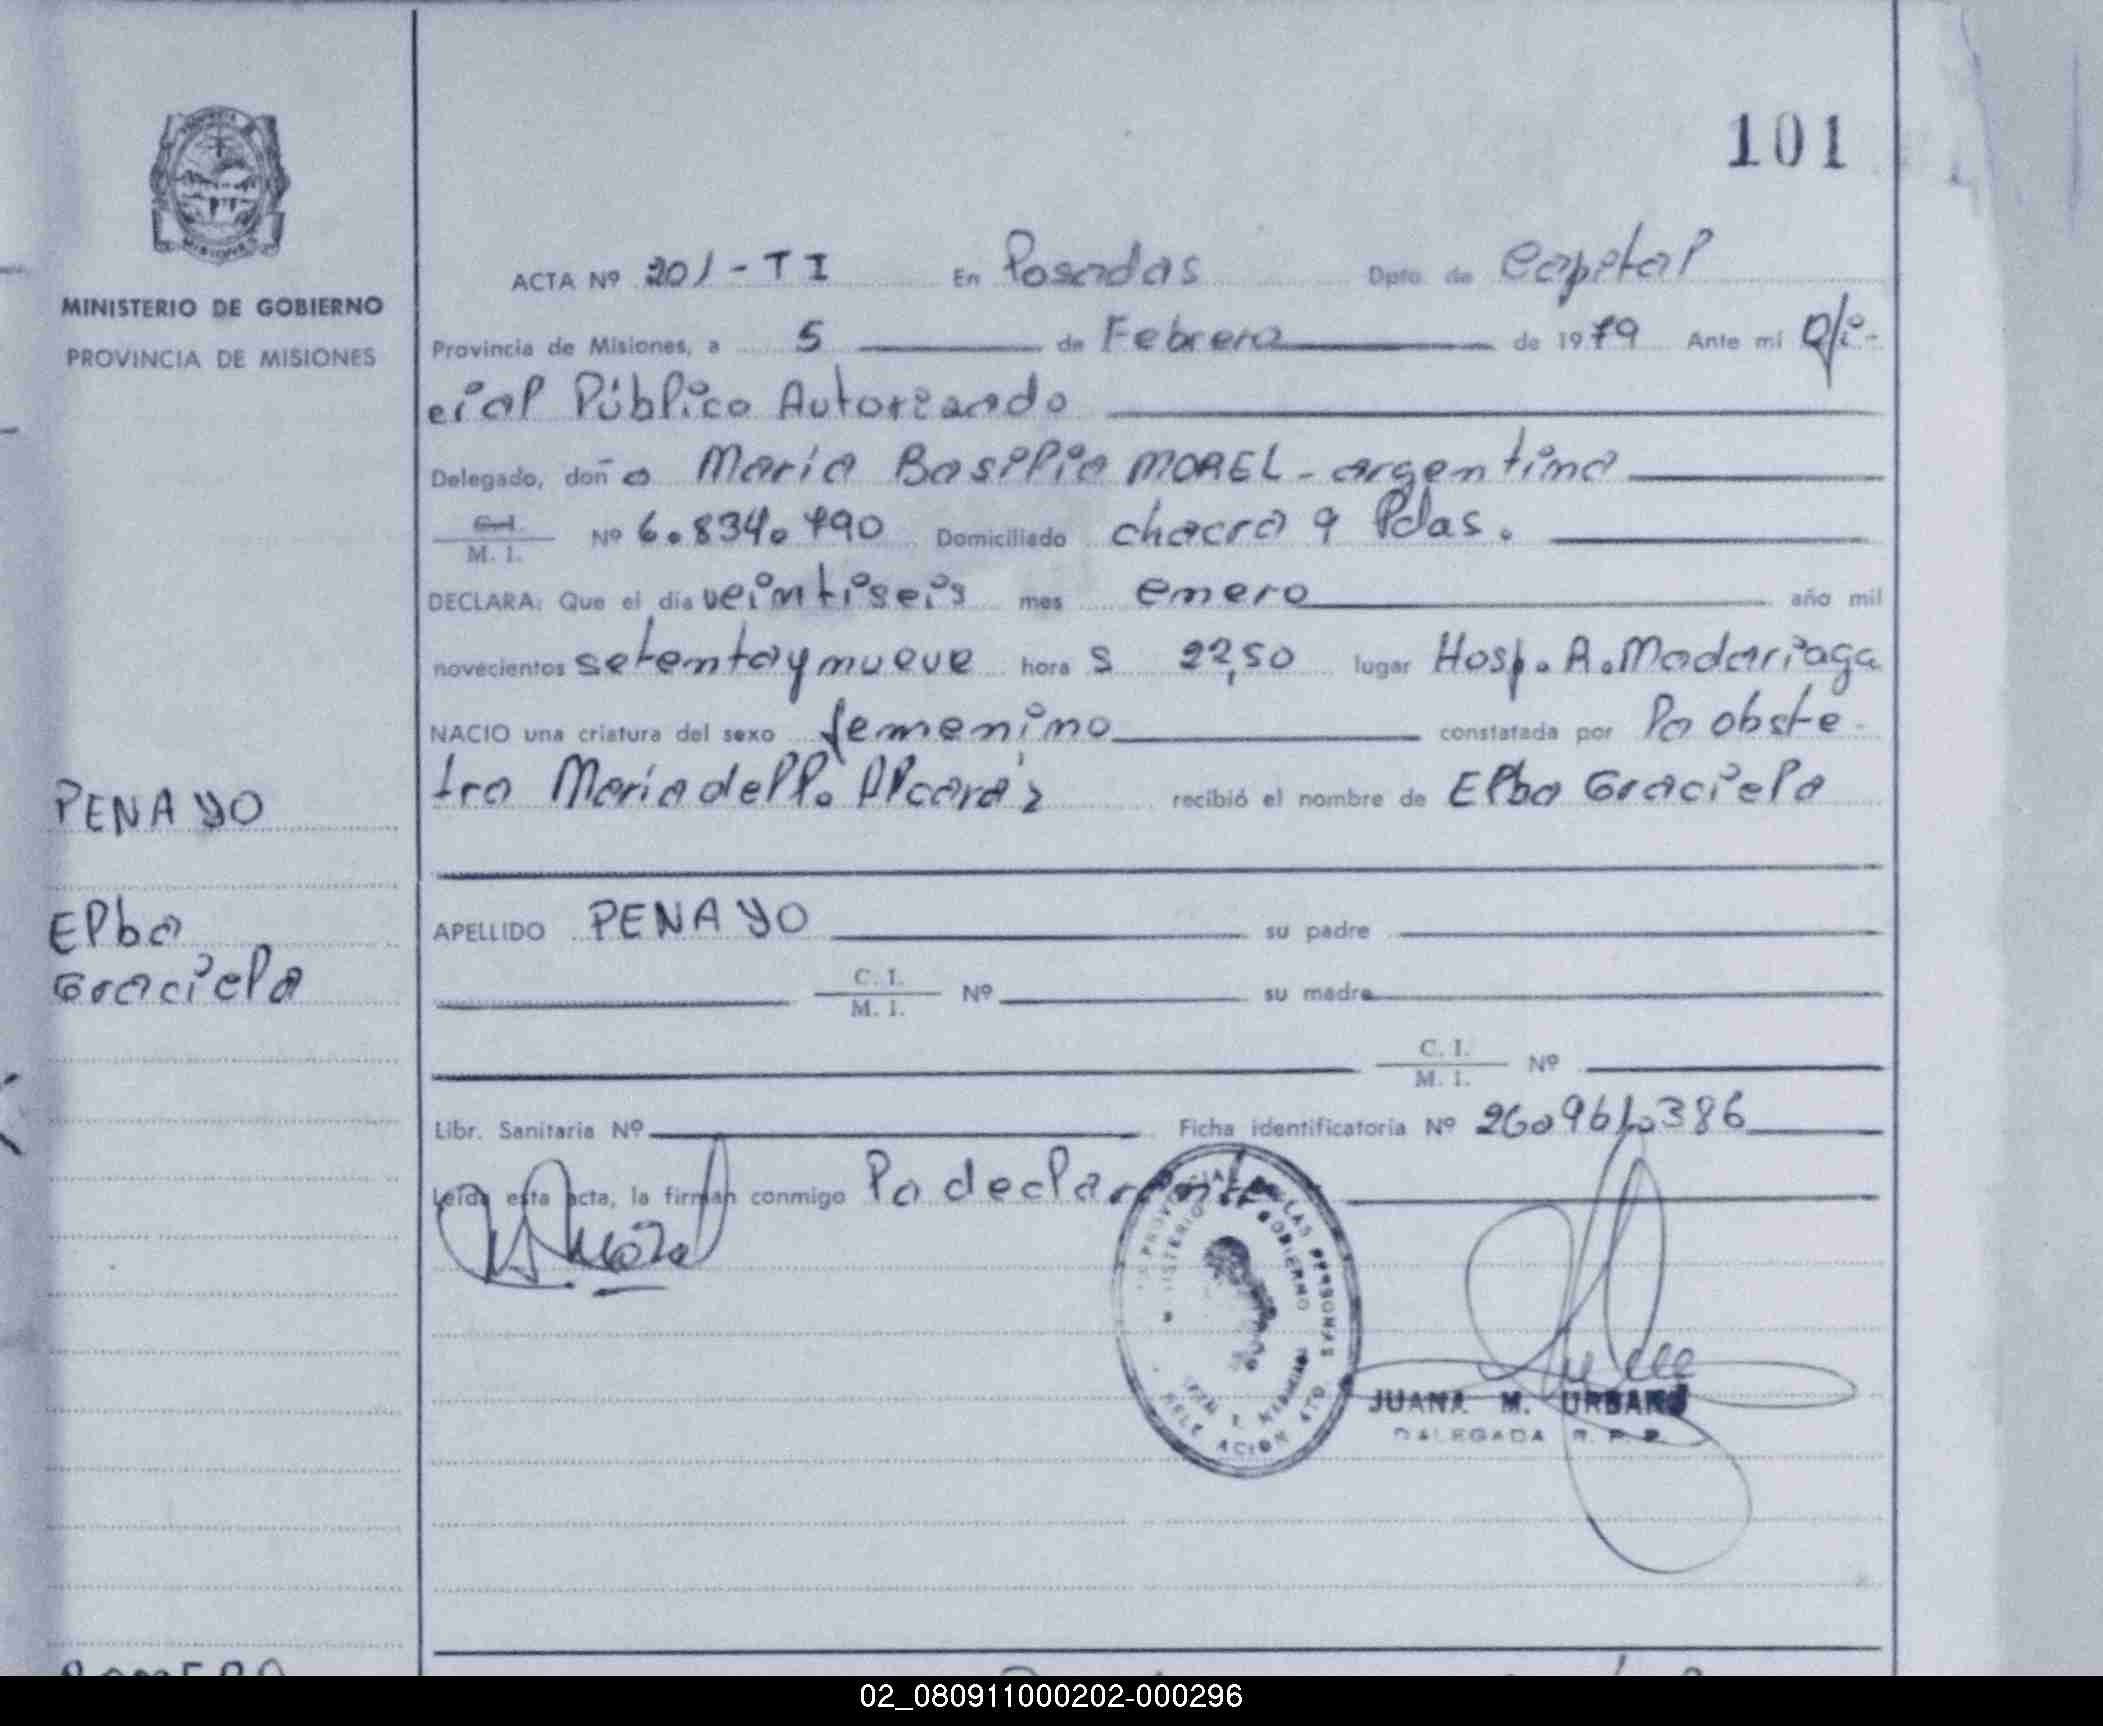 101
MINISTERIO DE GOBIERNO
PROVINCIA DE MISIONES
ACTA Nº 201-TI En Posadas Dpto. de Capital
Provincia de Misiones, a 5 de Febrero de 1979 Ante mí Ofi-
cial Público Autorizando
Delegado, doña María Basilia MOREL - argentina
C.I. M. I. Nº 6.834.790 Domiciliado chacra 9 Pdas.
DECLARA: Que el día veintiseis mes enero año mil
novecientos setenta y nueve hora s 22,50 lugar Hosp. R. Madariaga
NACIO una criatura del sexo femenino constatada por la obste-
tra María del P. Alcaráz recibió el nombre de Elba Graciela
PENAYO
Elba
Graciela
APELLIDO PENAYO su padre
C. I. M. I. Nº su madre
C. I. M. I. Nº
Libr. Sanitaria Nº Ficha identificatoria Nº 26.961.386
Leída esta acta, la firman conmigo la declarante
JUANA M. URBANO
DELEGADA R. P. P.
02_080911000202-000296